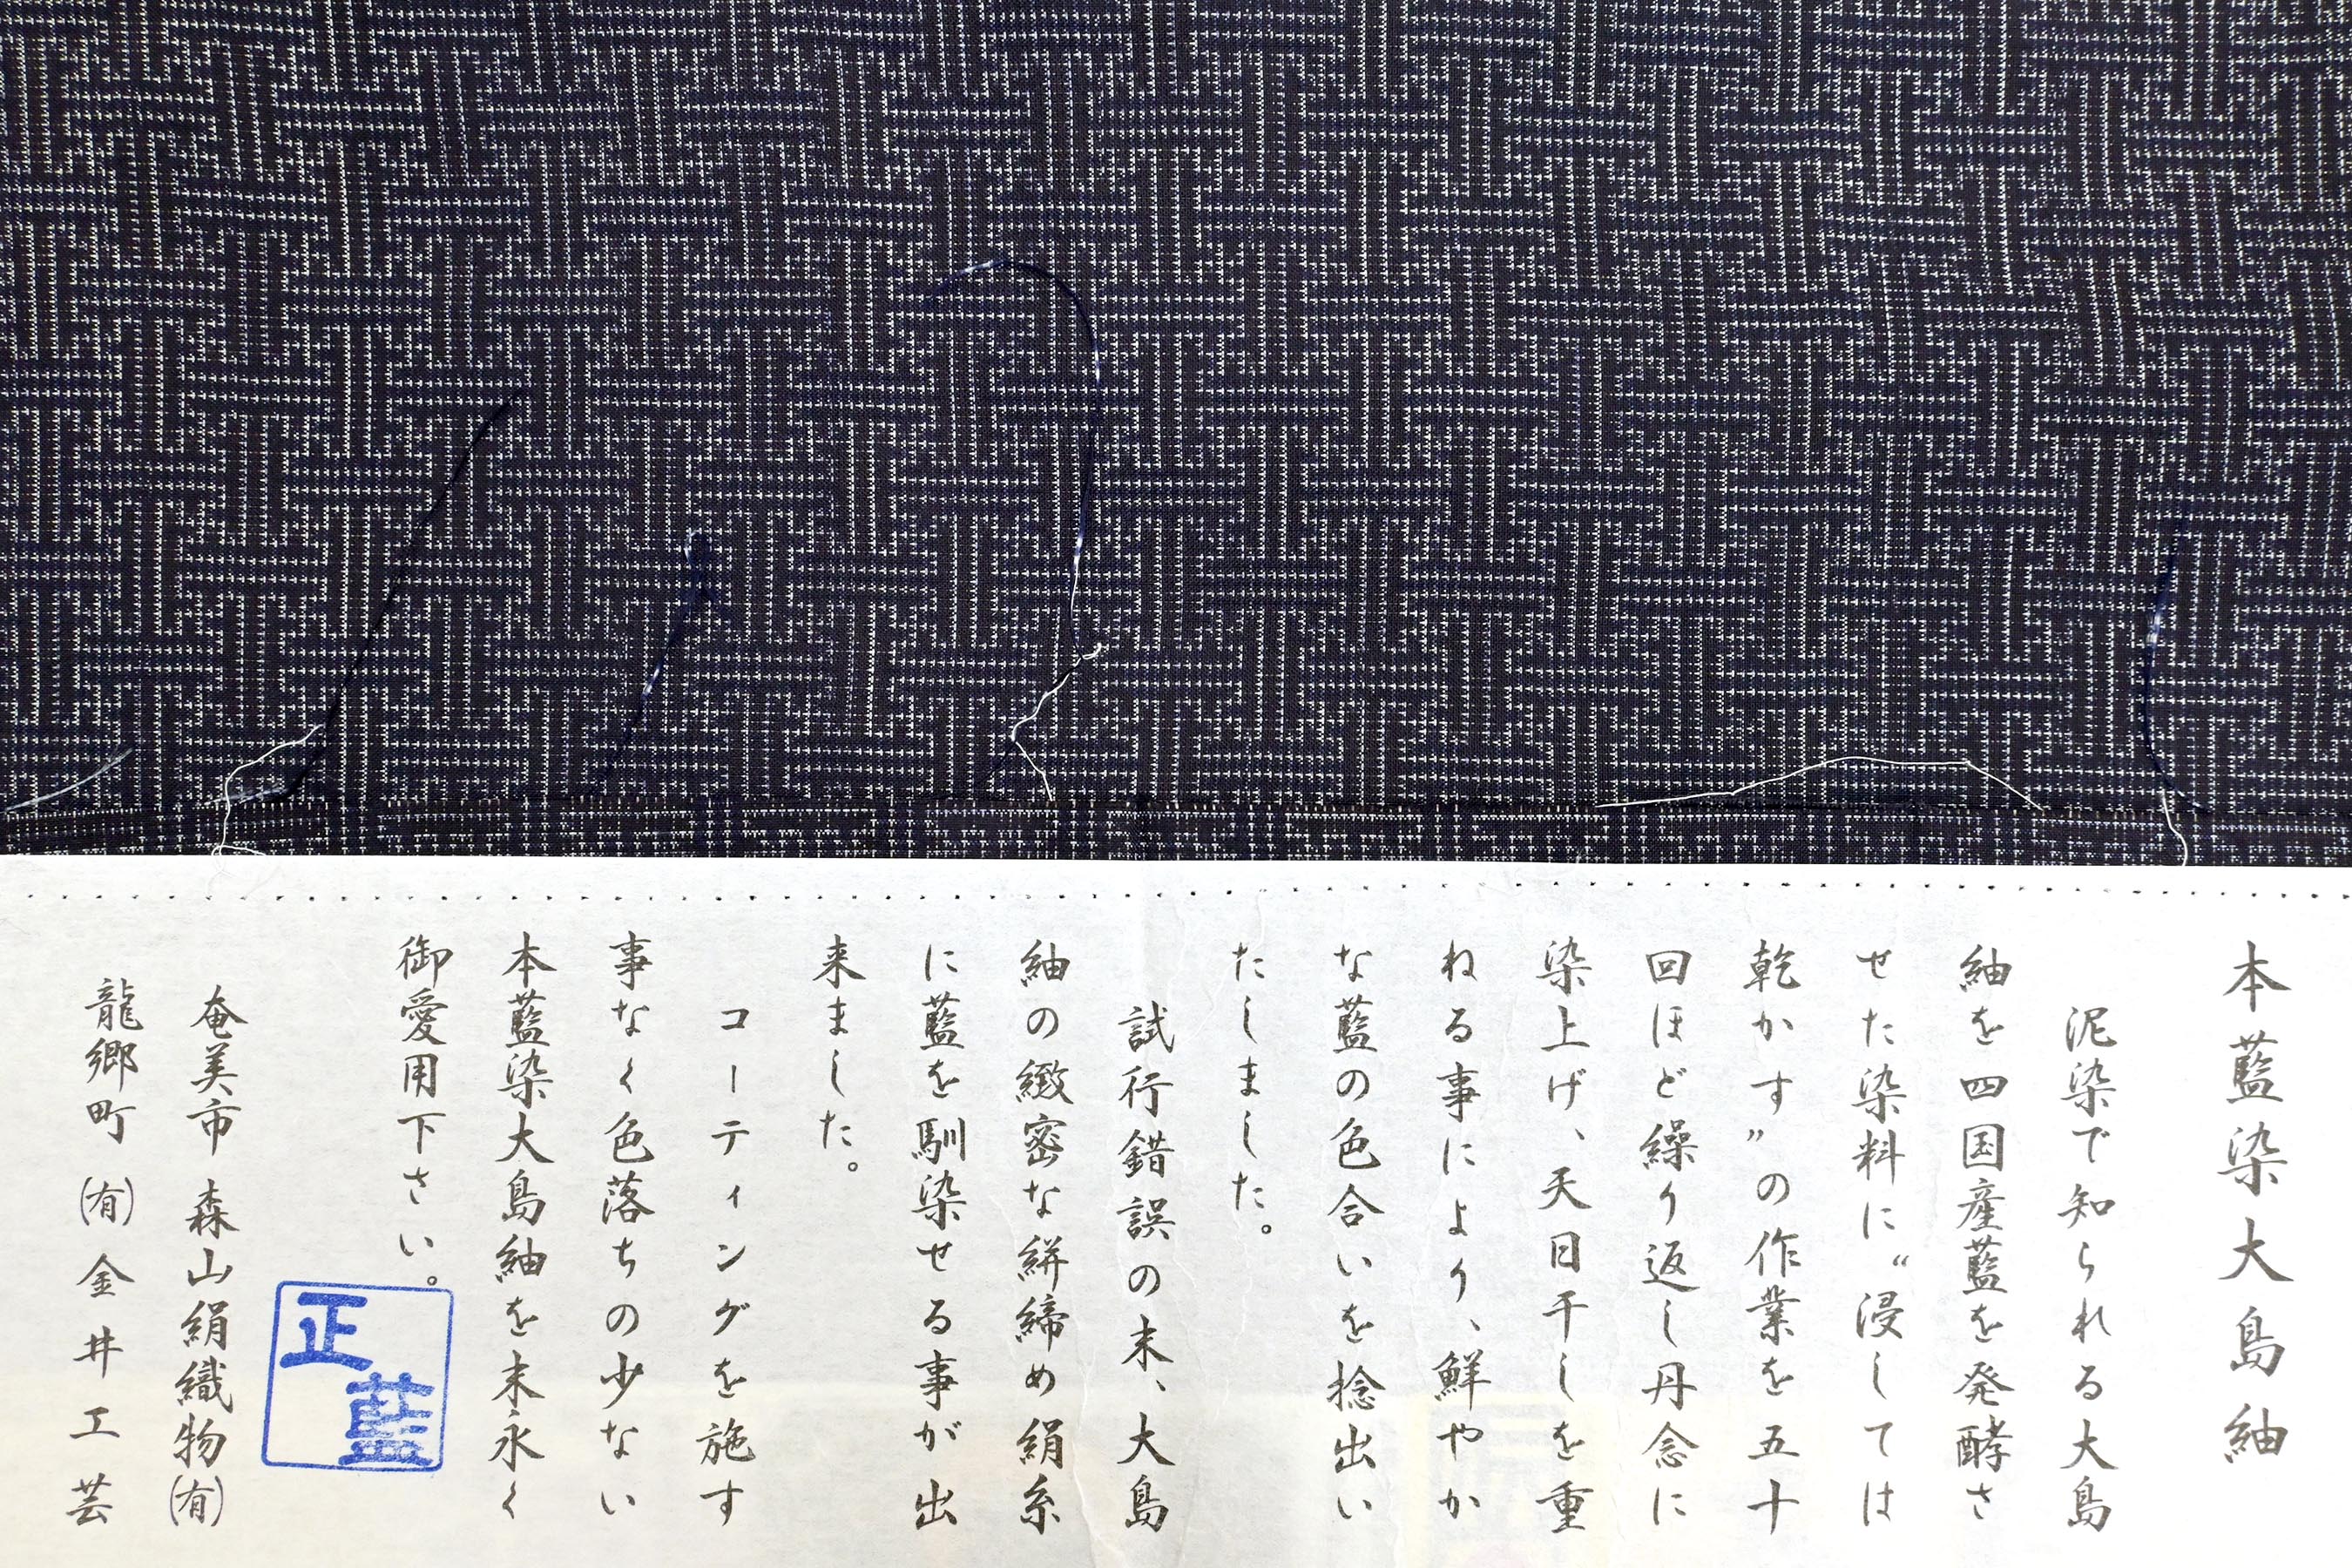 本藍染大島紬
泥染で知られる大島
紬を四国産藍を発酵さ
せた染料に“浸しては
乾かす”の作業を五十
回ほど繰り返し丹念に
染上げ、天日干しを重
ねる事により、鮮やか
な藍の色合いを捻出い
たしました。
試行錯誤の末、大島
紬の緻密な絣締め絹糸
に藍を馴染せる事が出
来ました。
コーティングを施す
事なく色落ちの少ない
本藍染大島紬を末永く
御愛用下さい。
正藍
奄美市 森山絹織物㈲
龍郷町 ㈲金井工芸